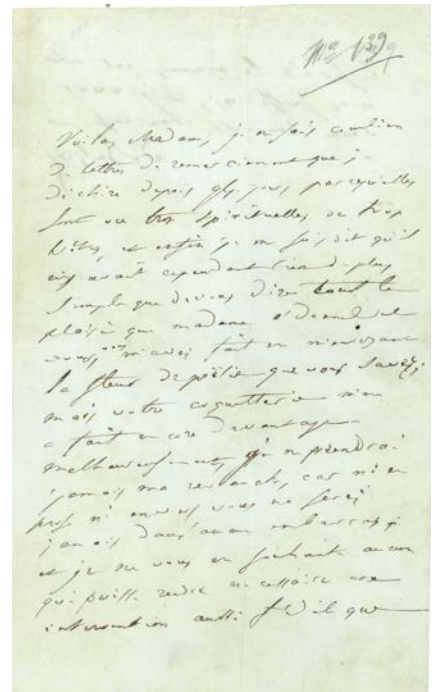 Voila, Madame, je ne sais combien
de lettres de remerciement que je
déchire depuis qlqs jours, parcequ'elles
sont ou trop spirituelles ou trop
bêtes et enfin je me suis dit qu'il
n'y avait cependant rien de plus
simple que de vous dire tout le
plaisir que madame O'Donnel et
vous, m'avez fait en m'envoyant
la fleur de poésie que vous savez;
mais votre coquetterie m'en
a fait encore davantage
malheureusement, je n'en prendrai
jamais ma revanche, car ni en
prose ni en vers vous ne serez
jamais dans aucun embarras
et je ne vous en souhaite aucun
qui puisse rendre nécessaire une
intervention aussi que